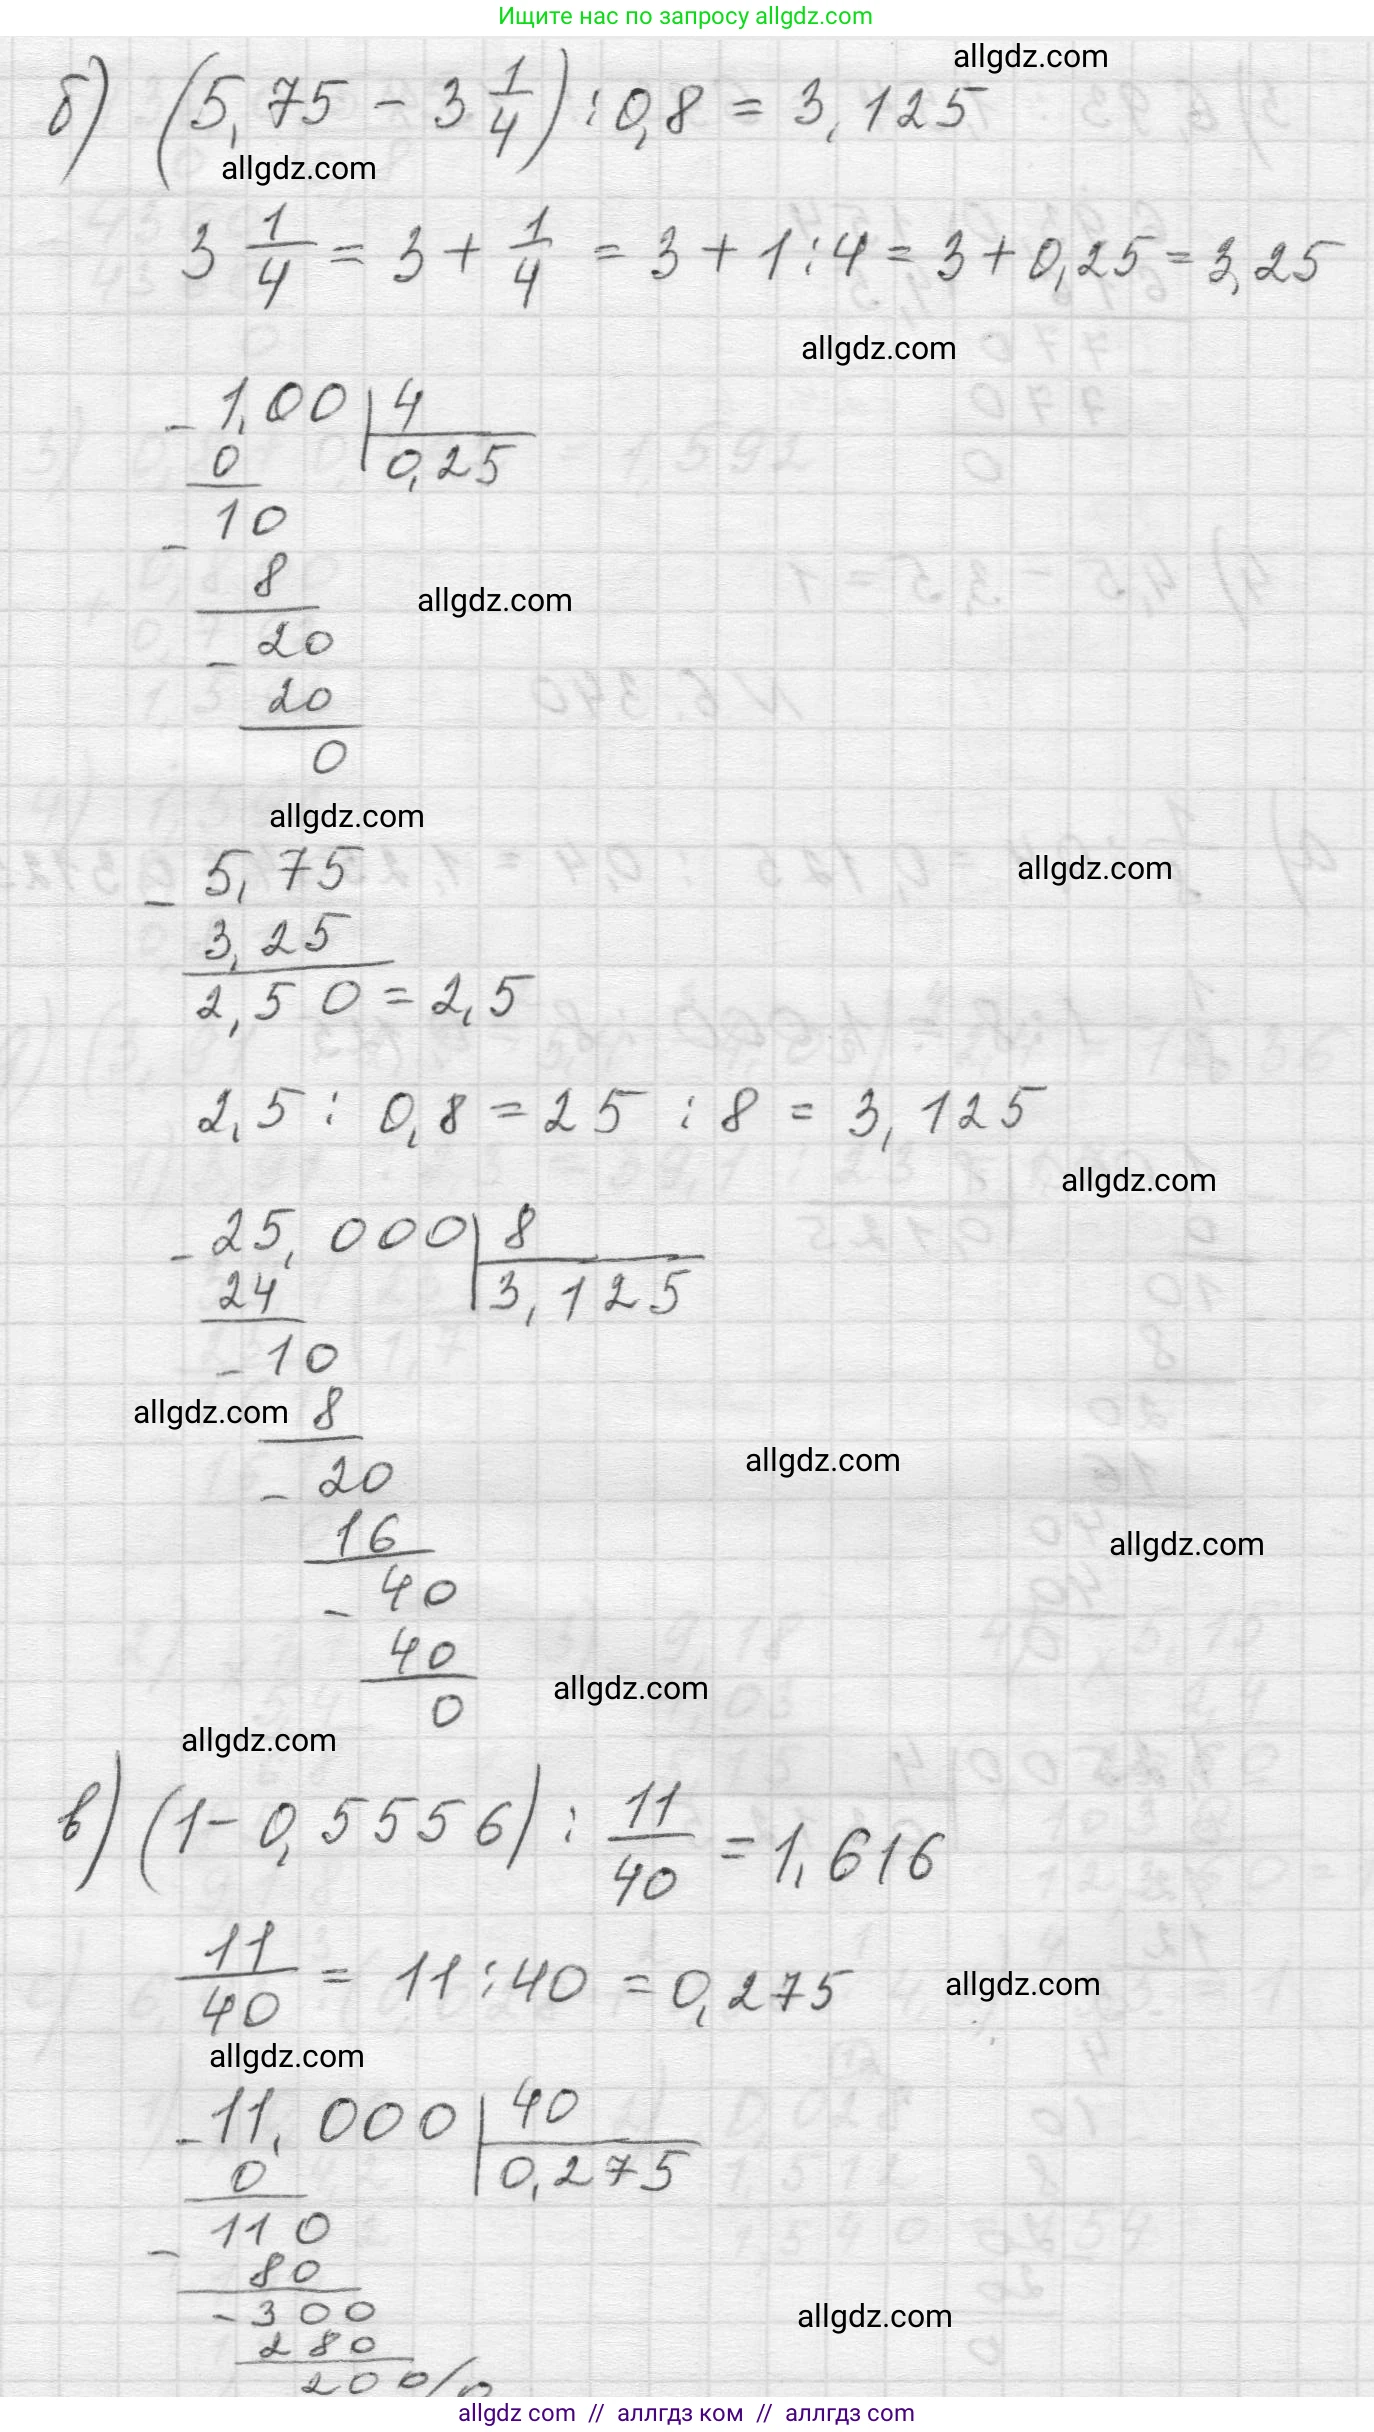 Ищите нас по запросу allgdz.com
allgdz.com
б) (5,75 - 3 1/4) : 0,8 = 3,125
allgdz.com
3 1/4 = 3 + 1/4 = 3 + 1 : 4 = 3 + 0,25 = 3,25
allgdz.com
- 1,00 | 4
0 | 0,25
- 10
8
allgdz.com
- 20
20
0
allgdz.com
- 5,75
allgdz.com
3,25
2,50 = 2,5
2,5 : 0,8 = 25 : 8 = 3,125
allgdz.com
- 25,000 | 8
24 | 3,125
- 10
allgdz.com
8
- 20
allgdz.com
16
allgdz.com
- 40
40
0
allgdz.com
allgdz.com
в) (1 - 0,5556) : 11/40 = 1,616
11/40 = 11 : 40 = 0,275
allgdz.com
allgdz.com
- 11,000 | 40
0 | 0,275
- 110
80
- 300
allgdz.com
280
200/0
allgdz com // аллгдз ком // аллгдз com